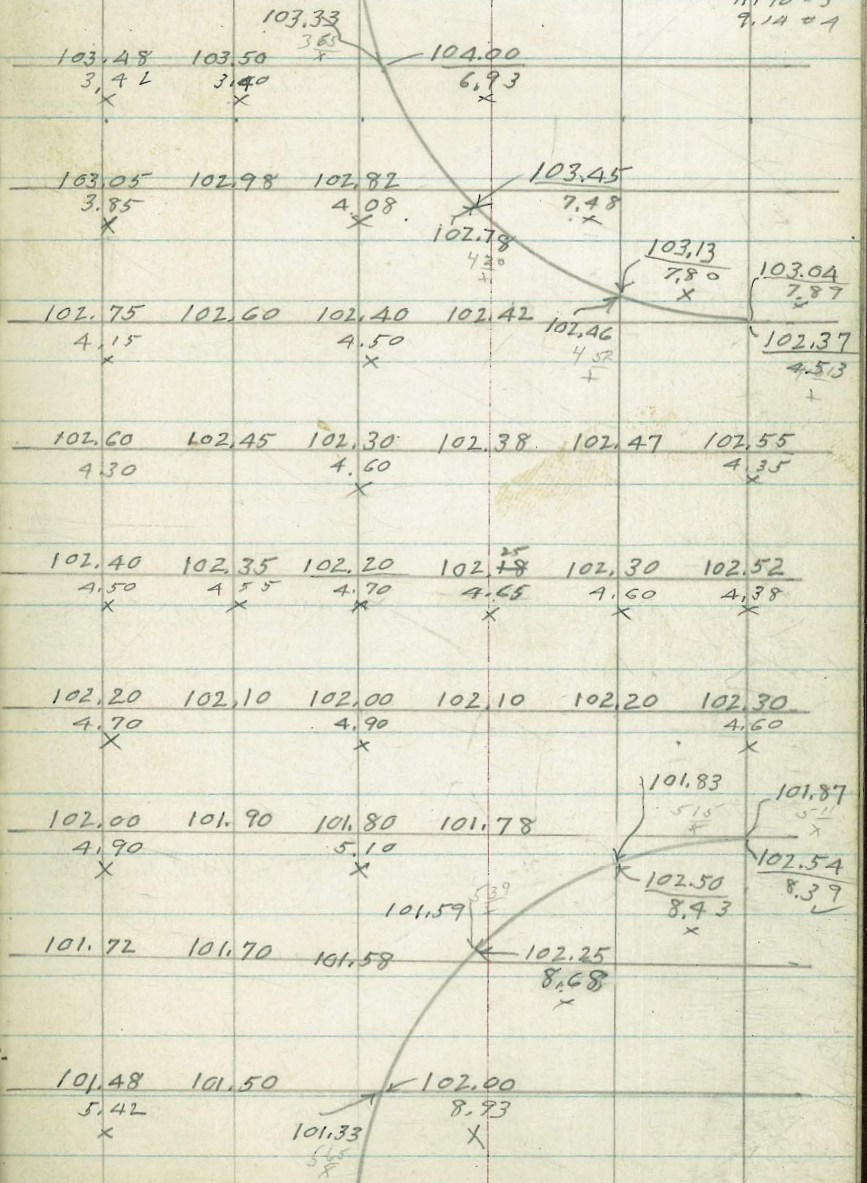 9.14 #4
103.33
365
103.48 103.50 104.00
3.42 3.40 6.93
103.05 102.98 102.82 103.45
3.85 4.08 7.48
102.78
420
103.13
7.80
103.04
7.89
102.75 102.60 102.40 102.42
4.15 4.50
102.46
452
102.37
4.513
102.60 102.45 102.30 102.38 102.47 102.55
4.30 4.60 4.35
25
102.40 102.35 102.20 102.18 102.30 102.52
4.50 4 55 4.70 4.65 4.60 4.38
102.20 102.10 102.00 102.10 102.20 102.30
4.70 4.90 4.60
101.83 101.87
515 511
102.00 101.90 101.80 101.78
4.90 5.10
102.54
8.39
102.50
8.43
539
101.59
101.72 101.70 101.58 102.25
8.68
101.48 101.50 102.00
5.42 8.93
101.33
565